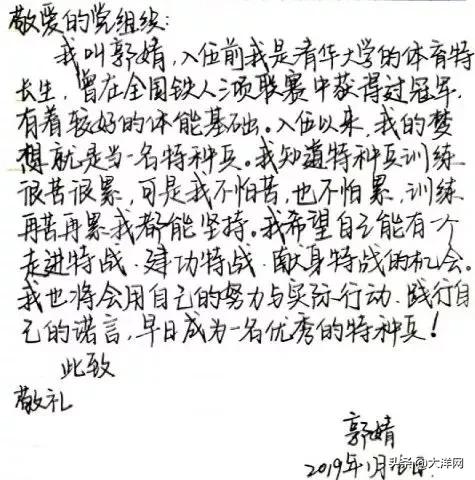 敬爱的党组织:
我叫郭婧,入伍前我是清华大学的体育特
长生,曾在全国铁人三项联赛中获得过冠军,
有着较好的体能基础。入伍以来,我的梦
想就是当一名特种兵。我知道特种兵训练
很苦很累,可是我不怕苦,也不怕累,训练
再苦再累我都能坚持。我希望自己能有一个
走进特战、建功特战、献身特战的机会。
我也将会用自己的努力与实际行动,践行自
己的诺言,早日成为一名优秀的特种兵!
此致
敬礼
郭婧
2019年1月
头条@大洋网